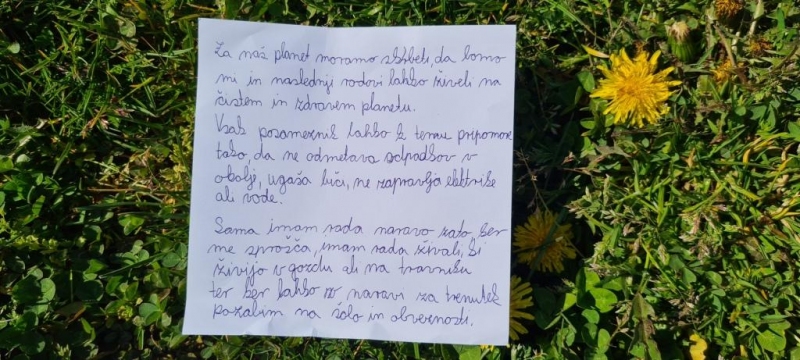 Za naš planet moramo skrbeti, da bomo
mi in naslednji rodovi lahko živeli na
čistem in zdravem planetu.
Vsak posameznik lahko k temu pripomore
tako, da ne odmetava odpadkov v
okolje, ugaša luči, ne zapravlja elektrike
ali vode.
Sama imam rada naravo zato, ker
me sprošča, imam rada živali, ki
živijo v gozdu ali na travniku
ter ker lahko v naravi za trenutek
pozabim na šolo in obveznosti.